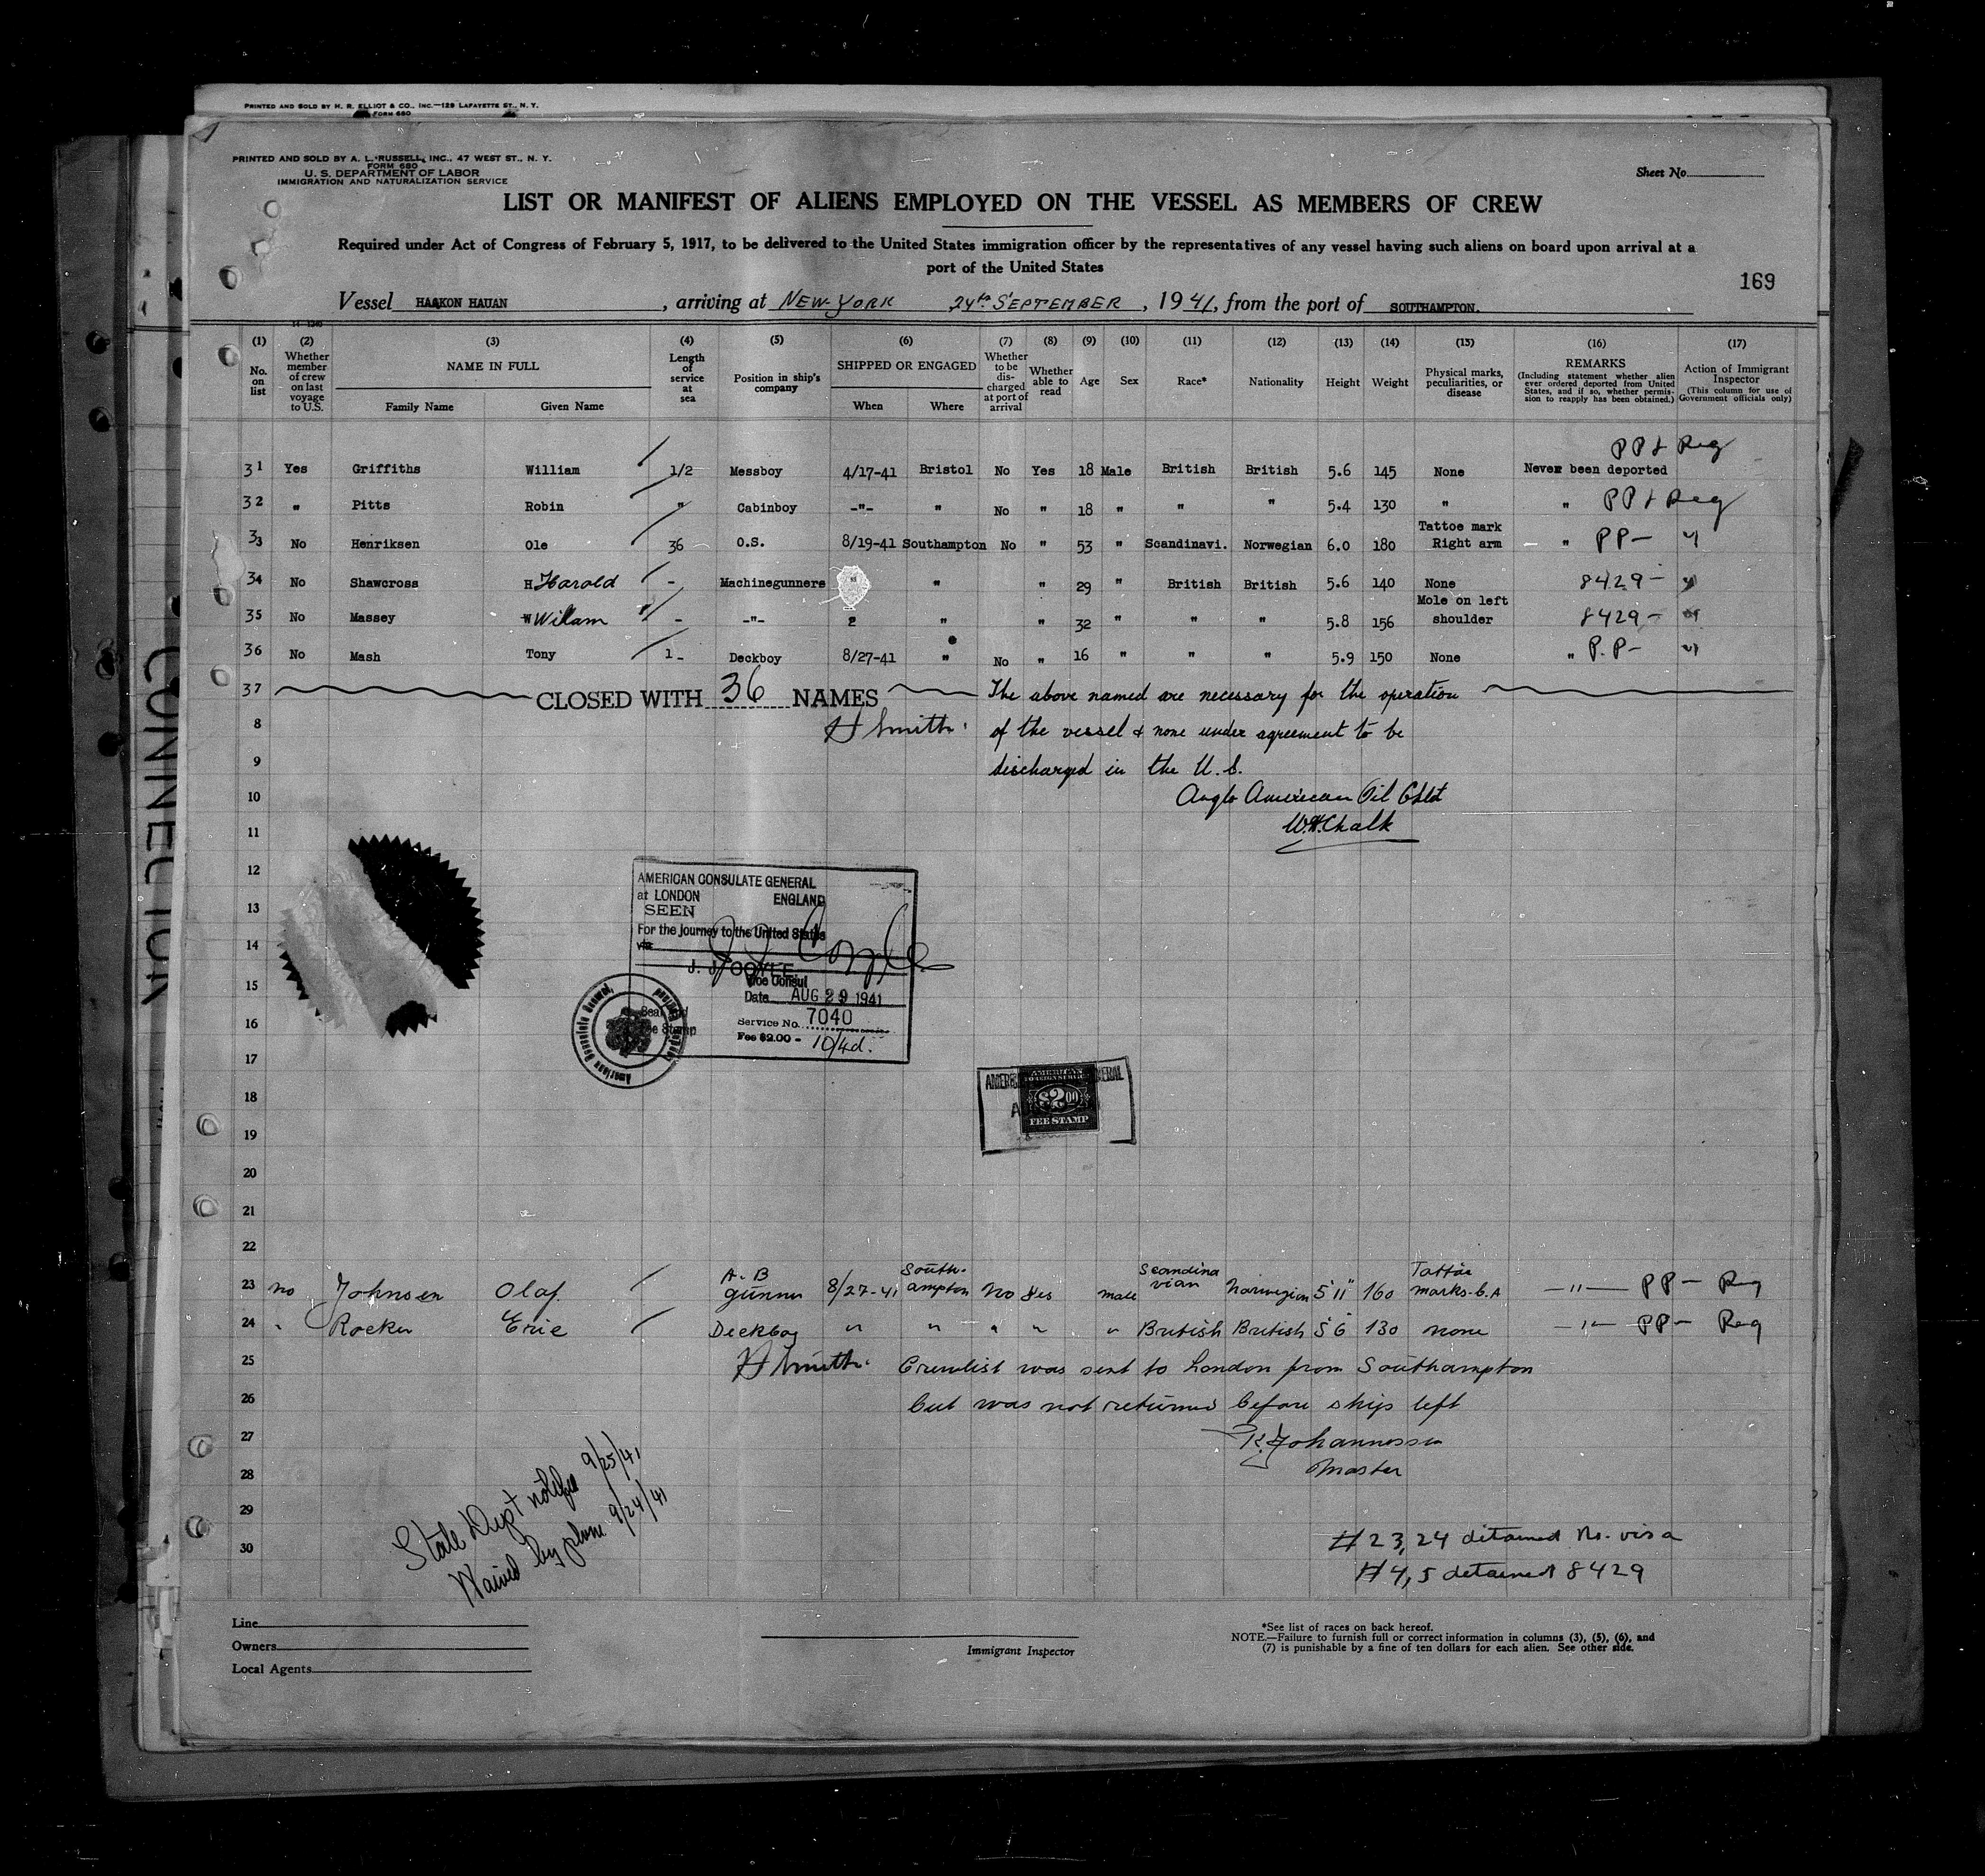 PRINTED AND SOLD BY H. R. ELLIOT & CO., INC.—129 LAFAYETTE ST., N. Y.
FORM 680
PRINTED AND SOLD BY A. L. RUSSELL, INC., 47 WEST ST., N. Y.
FORM 680
U. S. DEPARTMENT OF LABOR
IMMIGRATION AND NATURALIZATION SERVICE
Sheet No.
LIST OR MANIFEST OF ALIENS EMPLOYED ON THE VESSEL AS MEMBERS OF CREW
Required under Act of Congress of February 5, 1917, to be delivered to the United States immigration officer by the representatives of any vessel having such aliens on board upon arrival at a
port of the United States
169
Vessel HAAKON HAUAN, arriving at NEW-YORK 24th SEPTEMBER, 1941, from the port of SOUTHAMPTON.
(1) No. on list
(2) Whether member of crew on last voyage to U.S.
(3) NAME IN FULL Family Name Given Name
(4) Length of service at sea
(5) Position in ship's company
(6) SHIPPED OR ENGAGED When Where
(7) Whether to be discharged at port of arrival
(8) Whether able to read
(9) Age
(10) Sex
(11) Race*
(12) Nationality
(13) Height
(14) Weight
(15) Physical marks, peculiarities, or disease
(16) REMARKS (Including statement whether alien ever ordered deported from United States, and if so, whether permission to reapply has been obtained.)
(17) Action of Immigrant Inspector (This column for use of Government officials only)
PP & Reg
31 Yes Griffiths William 1/2 Messboy 4/17-41 Bristol No Yes 18 Male British British 5.6 145 None Never been deported
32 " Pitts Robin " Cabinboy -"- " No " 18 " " " 5.4 130 " " PP & Reg
33 No Henriksen Ole 36 O.S. 8/19-41 Southampton No " 53 " Scandinavi. Norwegian 6.0 180 Tattoe mark Right arm " PP- "
34 No Shawcross H Harold - Machinegunners " " " 29 " British British 5.6 140 None 8429- "
35 No Massey W Willam - -"- " " 32 " " " 5.8 156 Mole on left shoulder 8429- "
36 No Mash Tony 1- Deckboy 8/27-41 " No " 16 " " " 5.9 150 None " P.P- "
37 CLOSED WITH 36 NAMES The above named are necessary for the operation
8 H Smith of the vessel & none under agreement to be
9 discharged in the U.S.
10 Anglo American Oil Co Ltd
11 W.H.Chalk
12
AMERICAN CONSULATE GENERAL
at LONDON ENGLAND
13
SEEN
14
For the journey to the United States
via
J. J. COYLE
15
Vice Consul
Date AUG 29 1941
16
Service No. 7040
Fee $2.00 = 10/4d.
American Consulate General, London, England
17
18
$2.00
FEE STAMP
19
20
21
22
23 no Johnsen Olaf A.B gunner 8/27-41 Southampton No Yes male Scandinavian Norwegian 5'11" 160 Tattoe marks-b.A -"- PP- Reg
24 " Rocker Eric Deckboy " " " " " British British 5'6 130 none -"- PP- Reg
25 H Smith Crewlist was sent to London from Southampton
26 but was not returned before ship left
27 K. Johannessen
28 Master
29
30
State Dept notified 9/25/41
Waived by phone 9/24/41
# 23, 24 detained No. visa
# 4, 5 detained 8429
Line
Owners
Local Agents
Immigrant Inspector
*See list of races on back hereof.
NOTE.—Failure to furnish full or correct information in columns (3), (5), (6), and
(7) is punishable by a fine of ten dollars for each alien. See other side.
CONNECTION